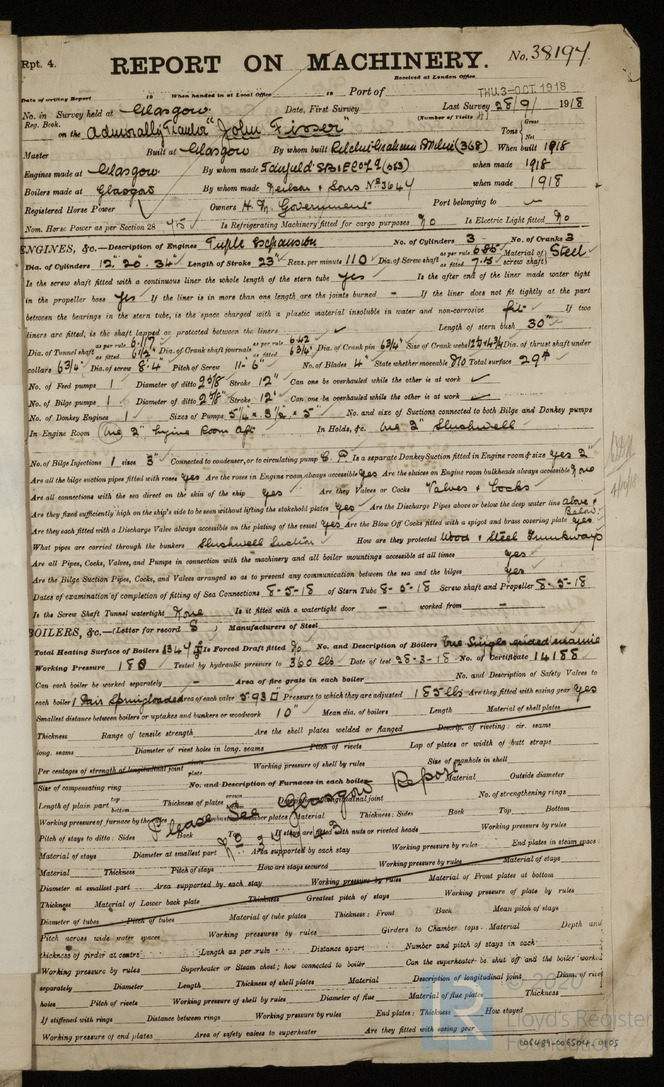 Rpt. 4.
REPORT ON MACHINERY.
No. 38197
Received at London Office
THU. 3 - OCT. 1918
Date of writing Report 19 When handed in at Local Office 19 Port of
No. in Survey held at Glasgow Date, First Survey Last Survey 28/9/ 1918
Reg. Book. (Number of Visits
on the Admiralty Trawler "John Fisser" Tons Gross Net
Master Built at Glasgow By whom built (368) When built 1918
Engines made at Glasgow By whom made Fairfield (053) when made 1918
Boilers made at Glasgow By whom made Neilson & Sons No 3647 when made 1918
Registered Horse Power Owners H. M. Government Port belonging to
Nom. Horse Power as per Section 28 75 Is Refrigerating Machinery fitted for cargo purposes No Is Electric Light fitted No
ENGINES, &c.—Description of Engines Triple Expansion No. of Cylinders 3 No. of Cranks 3
Dia. of Cylinders 12" 20" 34" Length of Stroke 23" Revs. per minute 110 Dia. of Screw shaft as per rule 6.85 as fitted 7.5 Material of screw shaft Steel
Is the screw shaft fitted with a continuous liner the whole length of the stern tube Yes Is the after end of the liner made water tight
in the propeller boss Yes If the liner is in more than one length are the joints burned - If the liner does not fit tightly at the part
between the bearings in the stern tube, is the space charged with a plastic material insoluble in water and non-corrosive fit If two
liners are fitted, is the shaft lapped or protected between the liners Length of stern bush 30"
Dia. of Tunnel shaft as per rule 6.17 as fitted 6 1/2" Dia. of Crank shaft journals as per rule 6.42 as fitted 6 3/4" Dia. of Crank pin 6 3/4" Size of Crank webs Dia. of thrust shaft under
collars 6 3/4" Dia. of screw 8'4" Pitch of Screw 11'-6" No. of Blades 4 State whether moveable No Total surface 29
No. of Feed pumps 1 Diameter of ditto 2 5/8" Stroke 12" Can one be overhauled while the other is at work
No. of Bilge pumps 1 Diameter of ditto 2 5/8" Stroke 12" Can one be overhauled while the other is at work
No. of Donkey Engines 1 Sizes of Pumps 5 1/4" x 3 1/2" x 5" No. and size of Suctions connected to both Bilge and Donkey pumps
In Engine Room One 2" Engine Room aft In Holds, &c. One 2" Slushwell
No. of Bilge Injections 1 sizes 3" Connected to condenser, or to circulating pump C.P. Is a separate Donkey Suction fitted in Engine room & size Yes 2"
Are all the bilge suction pipes fitted with roses Yes Are the roses in Engine room always accessible Yes Are the sluices on Engine room bulkheads always accessible None
Are all connections with the sea direct on the skin of the ship Yes Are they Valves or Cocks Valves & Cocks
Are they fixed sufficiently high on the ship's side to be seen without lifting the stokehold plates Yes Are the Discharge Pipes above or below the deep water line above & Below
Are they each fitted with a Discharge Valve always accessible on the plating of the vessel Yes Are the Blow Off Cocks fitted with a spigot and brass covering plate Yes
What pipes are carried through the bunkers Slushwell Suction How are they protected Wood & Steel Trunkways
Are all Pipes, Cocks, Valves, and Pumps in connection with the machinery and all boiler mountings accessible at all times Yes
Are the Bilge Suction Pipes, Cocks, and Valves arranged so as to prevent any communication between the sea and the bilges Yes
Dates of examination of completion of fitting of Sea Connections 8-5-18 of Stern Tube 8-5-18 Screw shaft and Propeller 8-5-18
Is the Screw Shaft Tunnel watertight None Is it fitted with a watertight door - worked from -
BOILERS, &c.—(Letter for record S ) Manufacturers of Steel
Total Heating Surface of Boilers 1347 Is Forced Draft fitted No No. and Description of Boilers One Single ended marine
Working Pressure 180 Tested by hydraulic pressure to 360 lbs Date of test 28-3-18 No. of Certificate 14188
Can each boiler be worked separately - Area of fire grate in each boiler No. and Description of Safety Valves to
each boiler 1 Pair Spring loaded Area of each valve 5.93 Pressure to which they are adjusted 185 lbs Are they fitted with easing gear Yes
Smallest distance between boilers or uptakes and bunkers or woodwork 10" Mean dia. of boilers Length Material of shell plates
Thickness Range of tensile strength Are the shell plates welded or flanged Descrip. of riveting: cir. seams
long. seams Diameter of rivet holes in long. seams Pitch of rivets Lap of plates or width of butt straps
Per centages of strength of longitudinal joint rivets plate Working pressure of shell by rules Size of manhole in shell
Size of compensating ring No. and Description of Furnaces in each boiler Material Outside diameter
Length of plain part top bottom Thickness of plates crown bottom Description of longitudinal joint No. of strengthening rings
Working pressure of furnace by the rules Combustion chamber plates: Material Thickness: Sides Back Top Bottom
Please See Glasgow Report
Pitch of stays to ditto: Sides Back Top If stays are fitted with nuts or riveted heads Working pressure by rules
Material of stays Diameter at smallest part Area supported by each stay Working pressure by rules End plates in steam space:
Material Thickness Pitch of stays How are stays secured Working pressure by rules Material of stays
Diameter at smallest part Area supported by each stay Working pressure by rules Material of Front plates at bottom
Thickness Material of Lower back plate Thickness Greatest pitch of stays Working pressure of plate by rules
Diameter of tubes Pitch of tubes Material of tube plates Thickness: Front Back Mean pitch of stays
Pitch across wide water spaces Working pressures by rules Girders to Chamber tops: Material Depth and
thickness of girder at centre Length as per rule Distance apart Number and pitch of stays in each
Working pressure by rules Superheater or Steam chest; how connected to boiler Can the superheater be shut off and the boiler worked
separately Diameter Length Thickness of shell plates Material Description of longitudinal joint Diam. of rivet
holes Pitch of rivets Working pressure of shell by rules Diameter of flue Material of flue plates Thickness
If stiffened with rings Distance between rings Working pressure by rules End plates: Thickness How stayed
Working pressure of end plates Area of safety valves to superheater Are they fitted with easing gear
© 2020
Lloyd's Register
Foundation